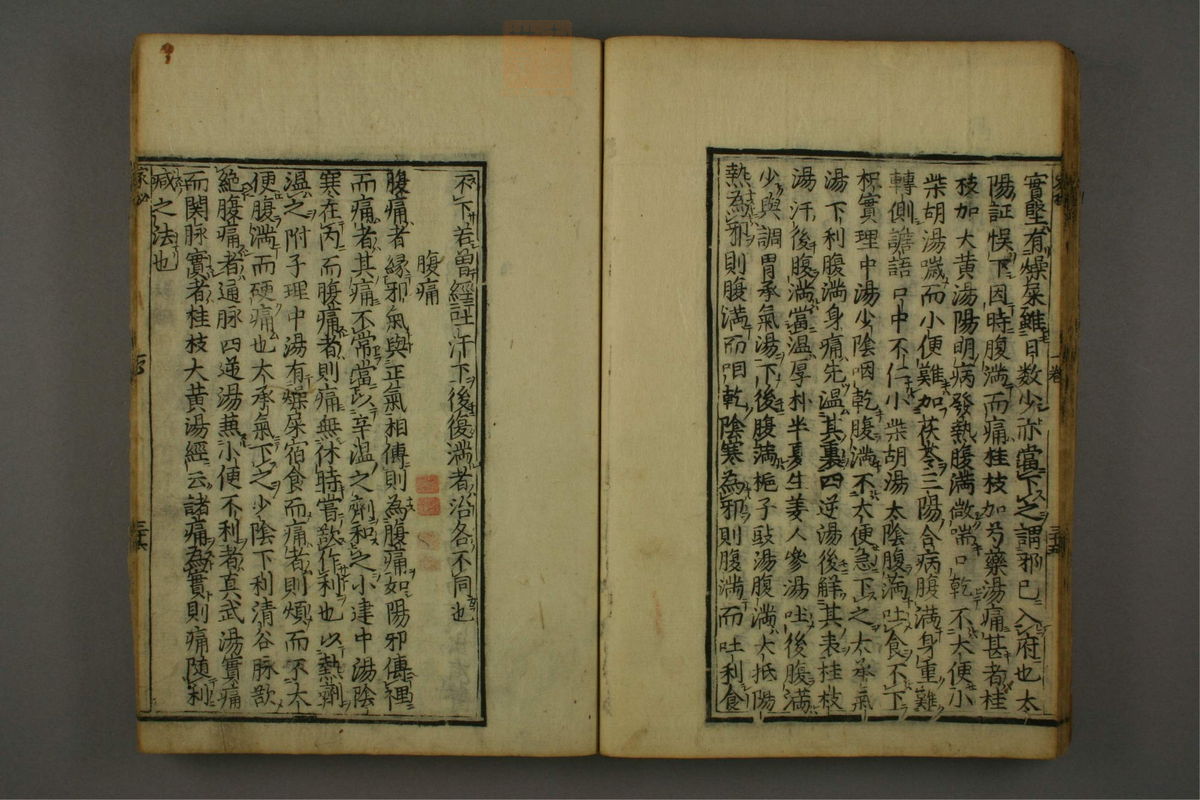 實堅有燥屎雖日数少亦當下之謂邪已入府也太
陽証悞下因時腹満而痛桂枝加芍藥湯痛甚者桂
枝加大黄湯陽明病發熱腹満微喘口乾不大便小
柴胡湯噦而小便難加茯苓三陽合病腹満身重難
轉側譫語口中不仁小柴胡湯太陰腹満吐食不下
枳實理中湯少陰咽乾腹満不大便急下之大承氣
湯下利腹満身痛先温其裏四逆湯後解其表桂枝
湯汗後腹満當温厚朴半夏生姜人參湯吐後腹満
少與調胃承氣湯下後腹満梔子豉湯腹満大抵陽
熱為邪則腹満而咽乾陰寒為邪則腹満而吐利食
一卷
三十五
不下若曽經吐汗下後腹満者治各不同也
腹痛
腹痛者縁邪氣與正氣相傅則為腹痛如陽邪傳裡
而痛者其痛不常當以辛温之劑和之小建中湯陰
寒在内而腹痛者則痛無休時嘗欲作利也以熱劑
温之附子理中湯有燥屎宿食而痛者則煩而不大
便腹満而硬痛也大承氣下之少陰下利清谷脉欲
絶腹痛者通脉四逆湯蒸小便不利者真武湯實痛
而関脉實者桂枝大黄湯經云諸痛為實則痛随利
减之法也